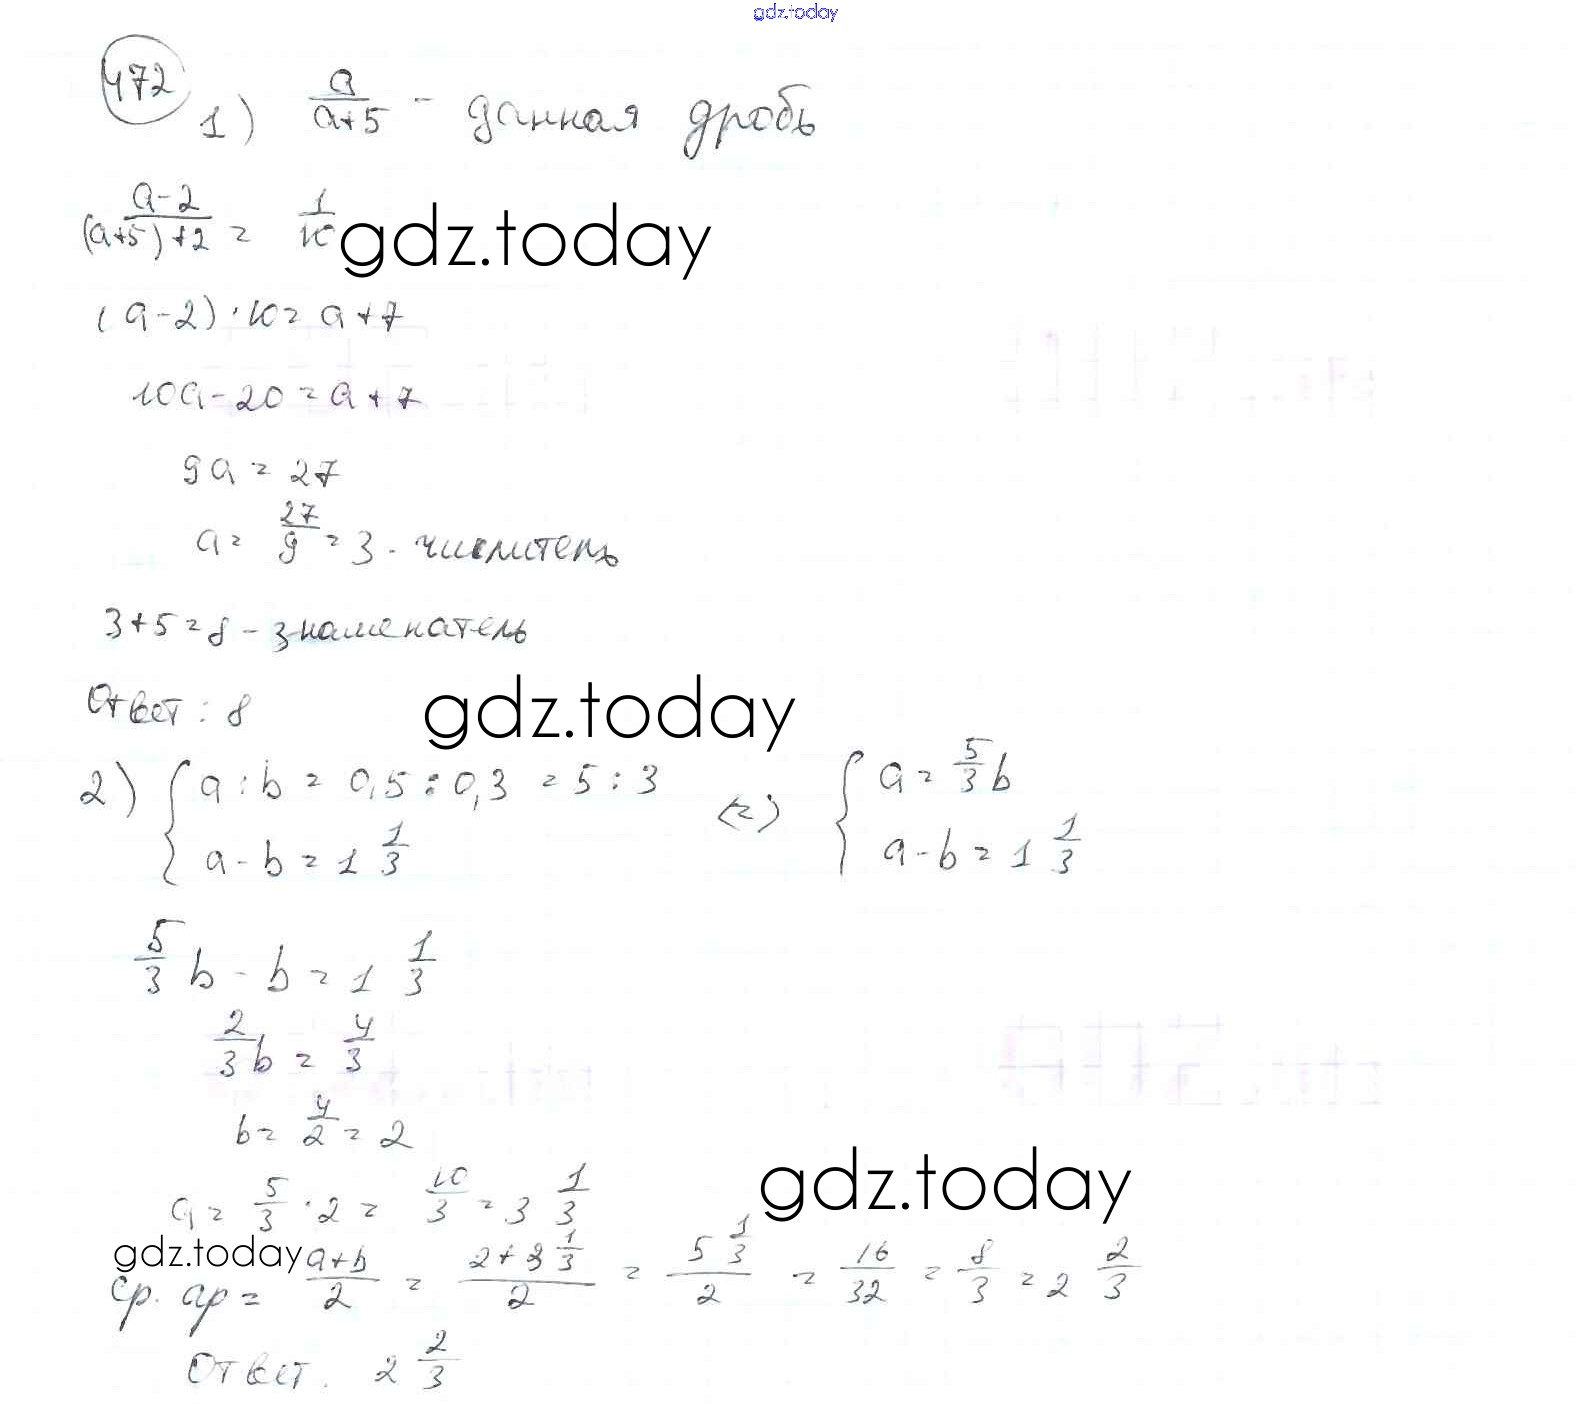 gdz.today
472
1) a/(a+5) - данная дробь
(a-2)/((a+5)+2) = 1/10
gdz.today
(a-2)·10 = a+7
10a-20 = a+7
9a = 27
a = 27/9 = 3 - числитель
3+5=8 - знаменатель
Ответ: 8
gdz.today
2) { a:b = 0,5:0,3 = 5:3 <=> { a = 5/3 b
a-b = 1 1/3 a-b = 1 1/3
5/3 b - b = 1 1/3
2/3 b = 4/3
b = 4/2 = 2
a = 5/3 · 2 = 10/3 = 3 1/3
gdz.today
gdz.today
ср. ар = (a+b)/2 = (2+3 1/3)/2 = (5 1/3)/2 = 16/32 = 8/3 = 2 2/3
Ответ. 2 2/3